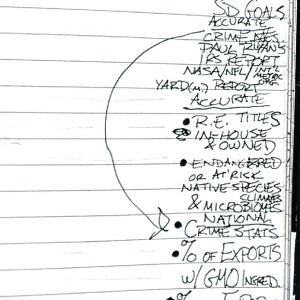 SD GOALS
ACCURATE
CRIME MES.
PAUL RYAN'S
IRS REPORT
NASA/NFL/INT'L
YARD(m) REPORT
ACCURATE
• R.E. TITLES
IN-HOUSE
& OWNED
• ENDANGERED
OR AT RISK
NATIVE SPECIES
& MICROBIOMES
NATIONAL
• CRIME STATS
• % OF EXPORTS
W/ GMO INGRED.